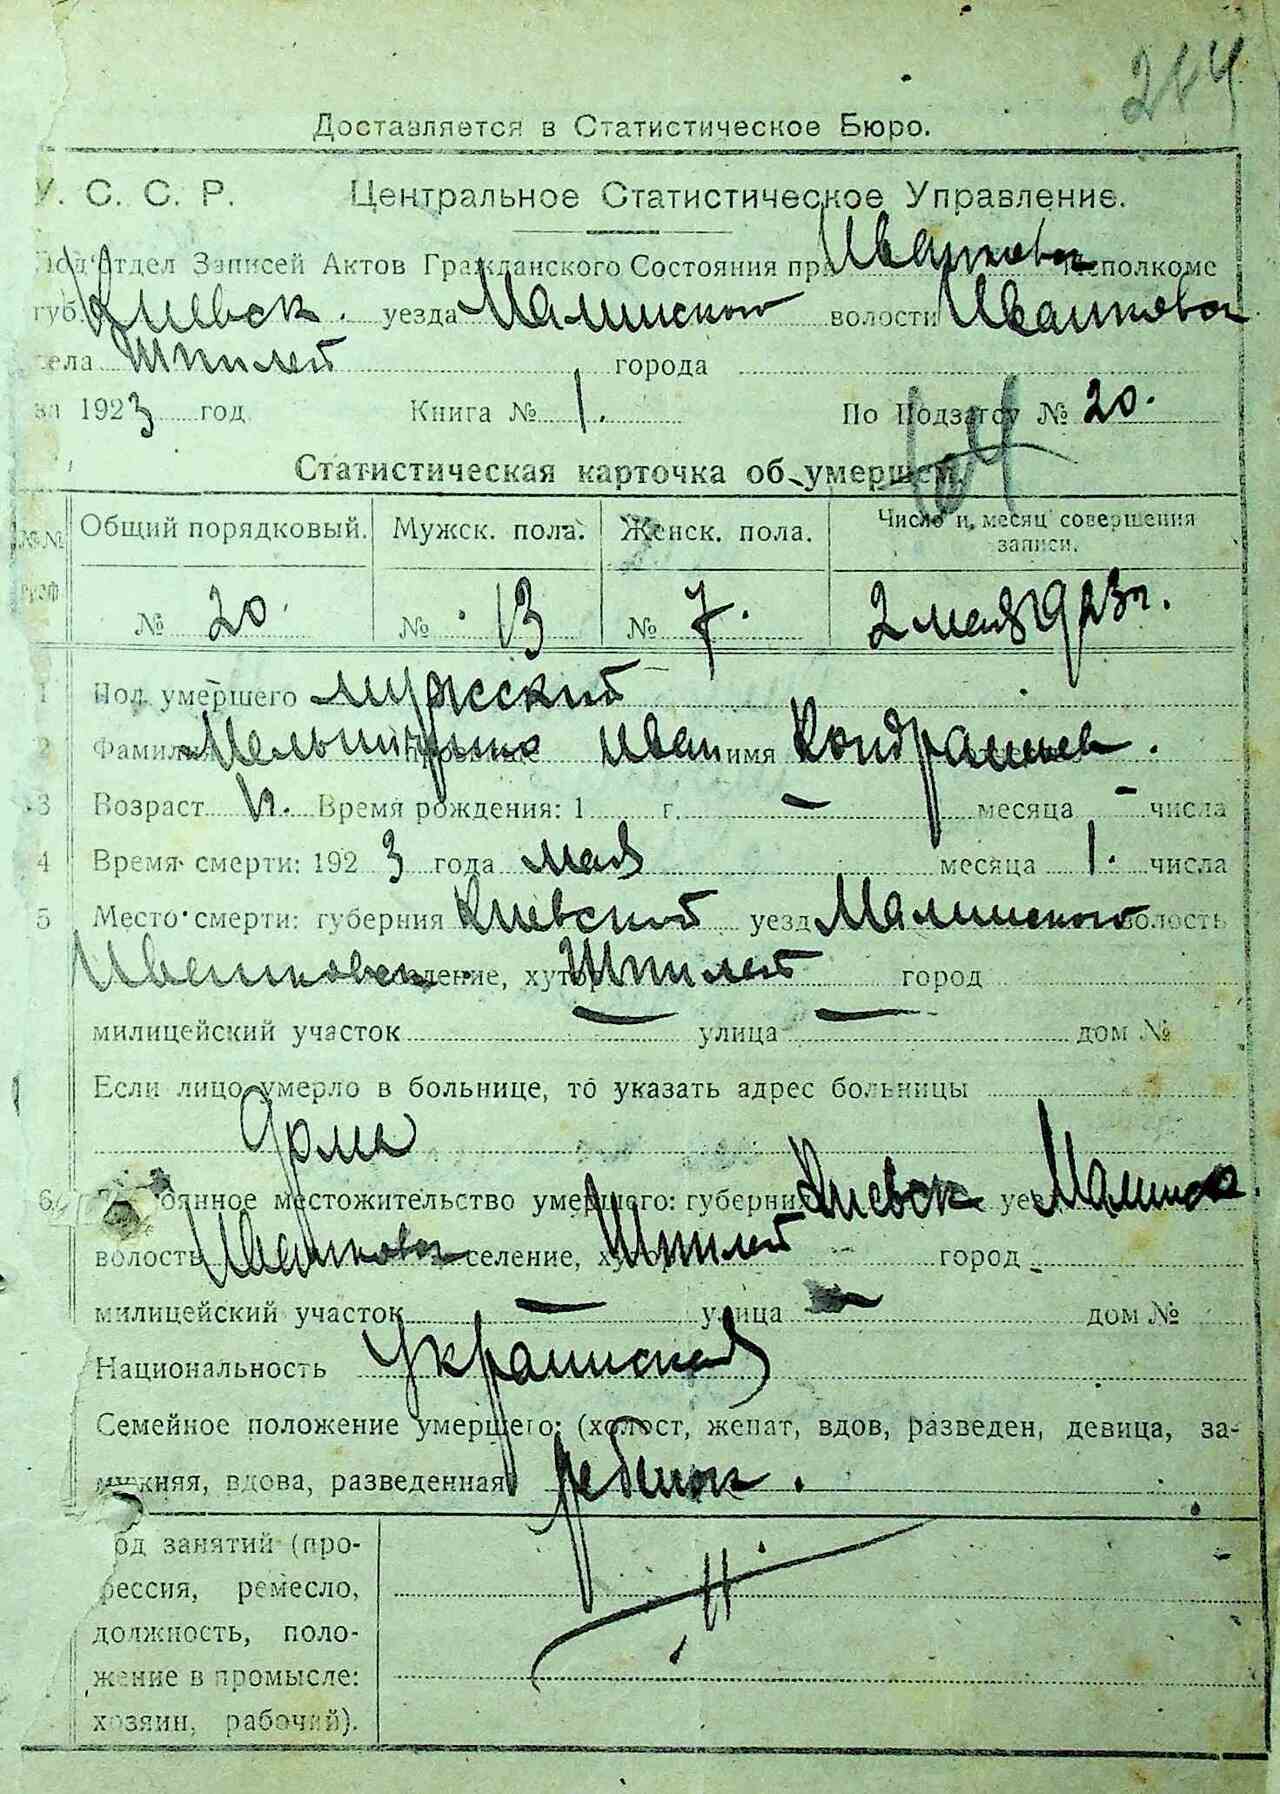 Доставляется в Статистическое Бюро.
У. С. С. Р. Центральное Статистическое Управление.
Под'отдел Записей Актов Гражданского Состояния при Иванковск Исполкоме
губ. Киевск. уезда Малинского волости Иванковск
села Шпилей города
за 1923 год Книга № 1. По Подзагсу № 20.
Статистическая карточка об умершем.
№№ Общий порядковый. Мужск. пола. Женск. пола. Число и месяц совершения
записи.
граф № 20. № 13 № 7. 2 мая 1923 г.
1 Пол умершего мужский
2 Фамилия Мельниченко Иван имя Кондрашев.
3 Возраст Время рождения: 1 г. — месяца — числа
4 Время смерти: 1923 года мая месяца 1. числа
5 Место смерти: губерния Киевской уезд Малинского волость
Иванковск. селение, хутор Шпилей город
милицейский участок — улица — дом №
Если лицо умерло в больнице, то указать адрес больницы
Дома
6 Постоянное местожительство умершего: губерния Киевск уезд Малинск
волость Иванковск селение, хутор Шпилей город
милицейский участок — улица — дом №
Национальность украинская
Семейное положение умершего: (холост, женат, вдов, разведен, девица, за-
мужняя, вдова, разведенная) ребинок.
Род занятий (про-
фессия, ремесло,
должность, поло-
жение в промысле:
хозяин, рабочий).